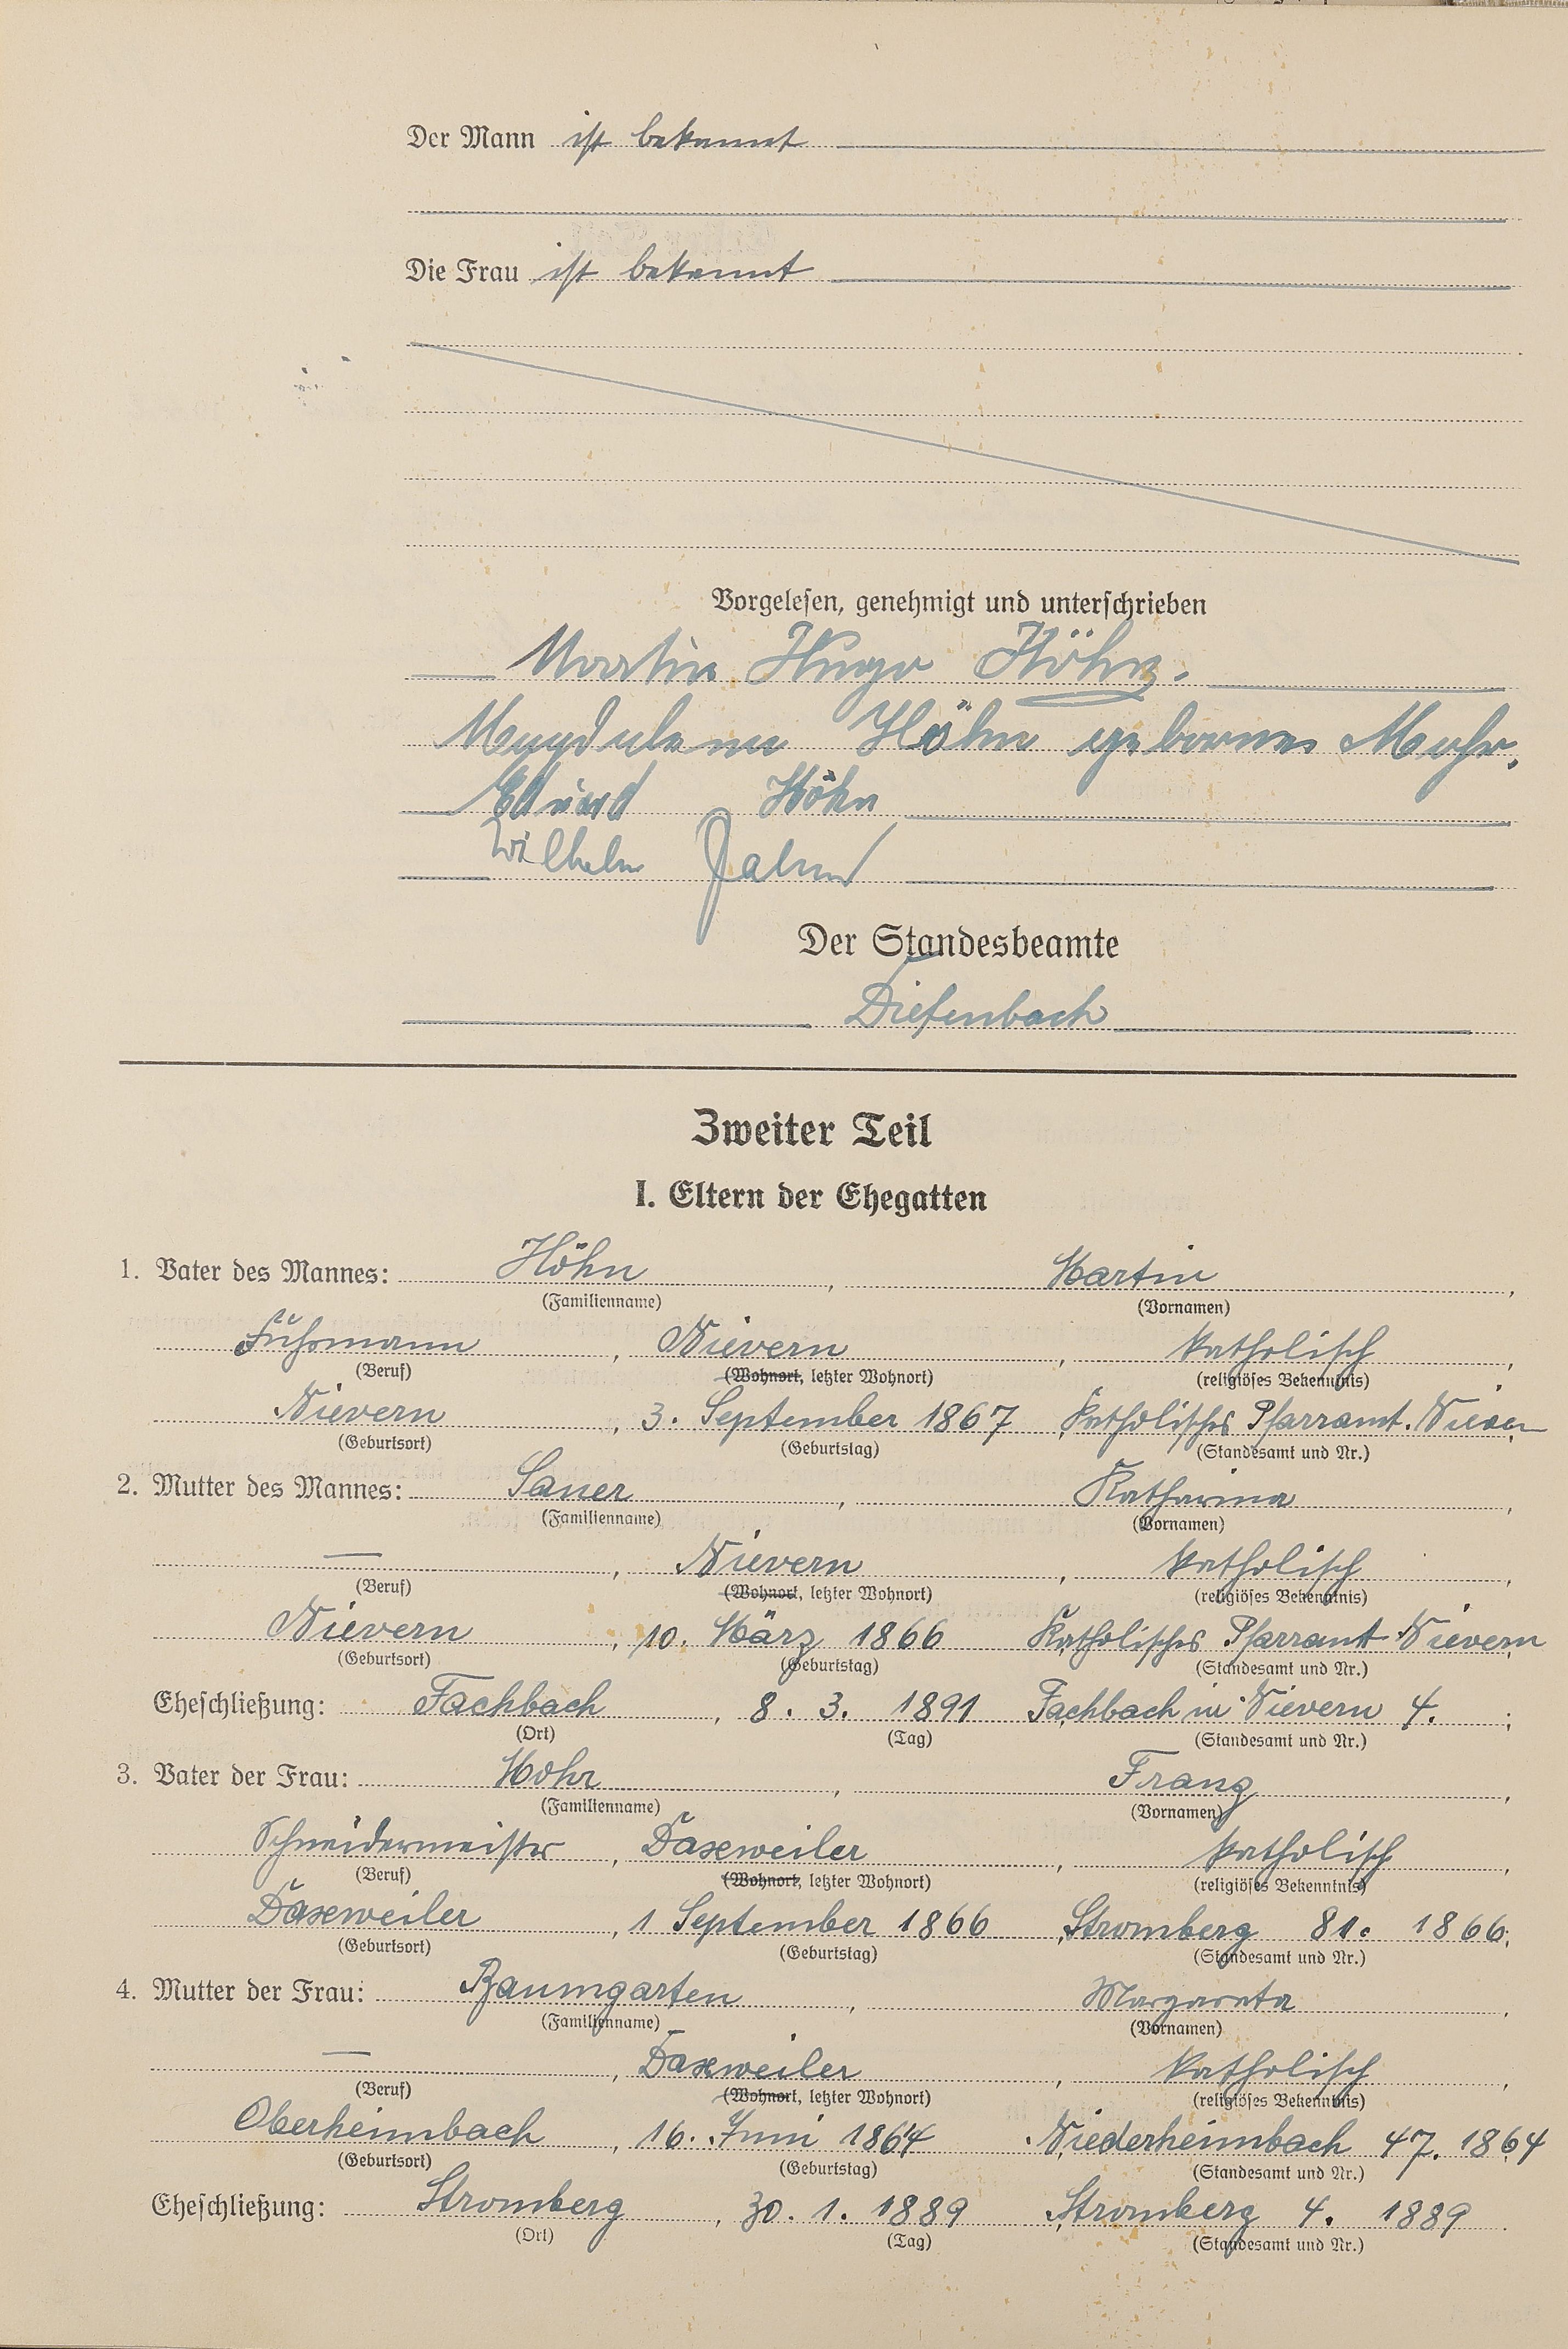 Der Mann ist bekannt
Die Frau ist bekannt
Vorgelesen, genehmigt und unterschrieben
Martin Hugo Höhn.
Magdalena Höhn geborene Mohr.
Eduard Höhn
Wilhelm
Der Standesbeamte
Diefenbach
Zweiter Teil
I. Eltern der Ehegatten
1. Vater des Mannes: Höhn, Martin,
(Familienname) (Vornamen)
Fuhrmann, Nievern, katholisch,
(Beruf) (Wohnort, letzter Wohnort) (religiöses Bekenntnis)
Nievern, 3. September 1867, Katholisches Pfarramt. Nievern
(Geburtsort) (Geburtstag) (Standesamt und Nr.)
2. Mutter des Mannes: Sauer, Katharina,
(Familienname) (Vornamen)
—, Nievern, katholisch,
(Beruf) (Wohnort, letzter Wohnort) (religiöses Bekenntnis)
Nievern, 10. März 1866, Katholisches Pfarramt Nievern
(Geburtsort) (Geburtstag) (Standesamt und Nr.)
Eheschließung: Fachbach, 8. 3. 1891, Fachbach in Nievern 4.;
(Ort) (Tag) (Standesamt und Nr.)
3. Vater der Frau: Mohr, Franz,
(Familienname) (Vornamen)
Schneidermeister, Daxweiler, katholisch,
(Beruf) (Wohnort, letzter Wohnort) (religiöses Bekenntnis)
Daxweiler, 1 September 1866, Stromberg 81. 1866;
(Geburtsort) (Geburtstag) (Standesamt und Nr.)
4. Mutter der Frau: Baumgarten, Margareta,
(Familienname) (Vornamen)
—, Daxweiler, katholisch,
(Beruf) (Wohnort, letzter Wohnort) (religiöses Bekenntnis)
Oberheimbach, 16. Juni 1864, Niederheimbach 47. 1864
(Geburtsort) (Geburtstag) (Standesamt und Nr.)
Eheschließung: Stromberg, 30. 1. 1889, Stromberg 4. 1889.
(Ort) (Tag) (Standesamt und Nr.)